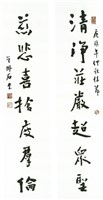 清淨莊嚴超衆聖
慈悲喜捨度群倫